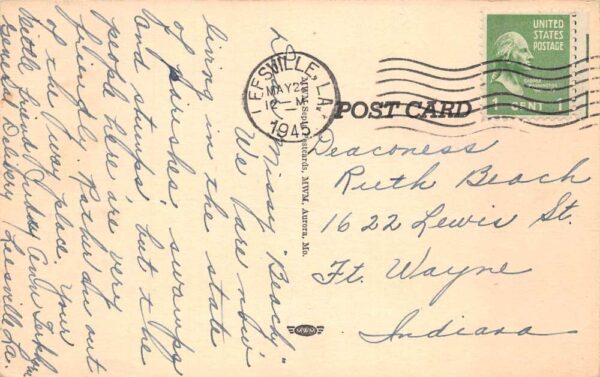 Dear Missy "Beach"
We are now
living in the state
of parishes, swamps
and stumps, but the
people here are very
friendly. Rather an out
of the way place. Your
little friend Ann
General Delivery Leesville La.
LEESVILLE, LA.
MAY 2
12 - M
1945
UNITED
STATES
POSTAGE
GEORGE
WASHINGTON
1 CENT 1
POST CARD
MWM Septol Postcards, MWM, Aurora, Mo.
MWM
Deaconess
Ruth Beach
1622 Lewis St.
Ft. Wayne
Indiana